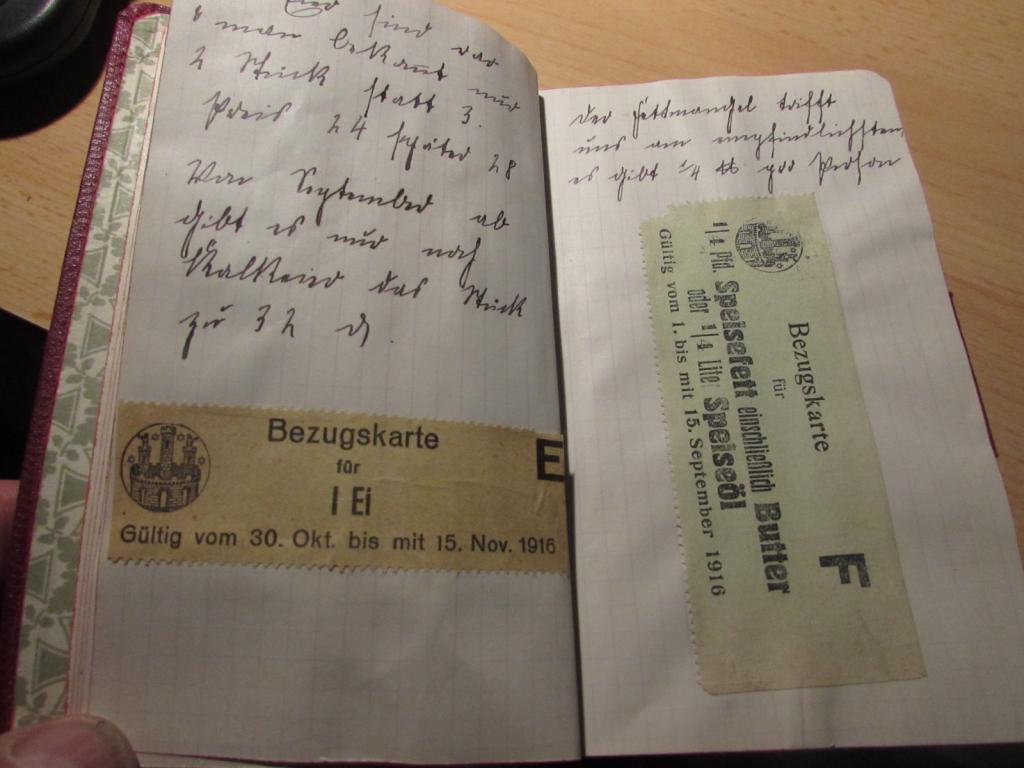 Eier sind rar
man bekamt nur
2 Stück statt 3.
Preis 24 später 28
Von September ab
gibt es nur noch
Kalkeier das Stück
zu 32 d
Bezugskarte
für
1 Ei
E
Gültig vom 30. Okt. bis mit 15. Nov. 1916
Der Fettmangel trifft
uns am empfindlichsten
es gibt 1/4 ℔ pro Person
Bezugskarte
für
F
1/4 Pfd. Speisefett einschließlich Butter
oder 1/4 Liter Speiseöl
Gültig vom 1. bis mit 15. September 1916